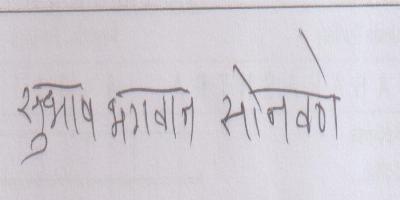 सुभाष भगवान सोनवणे